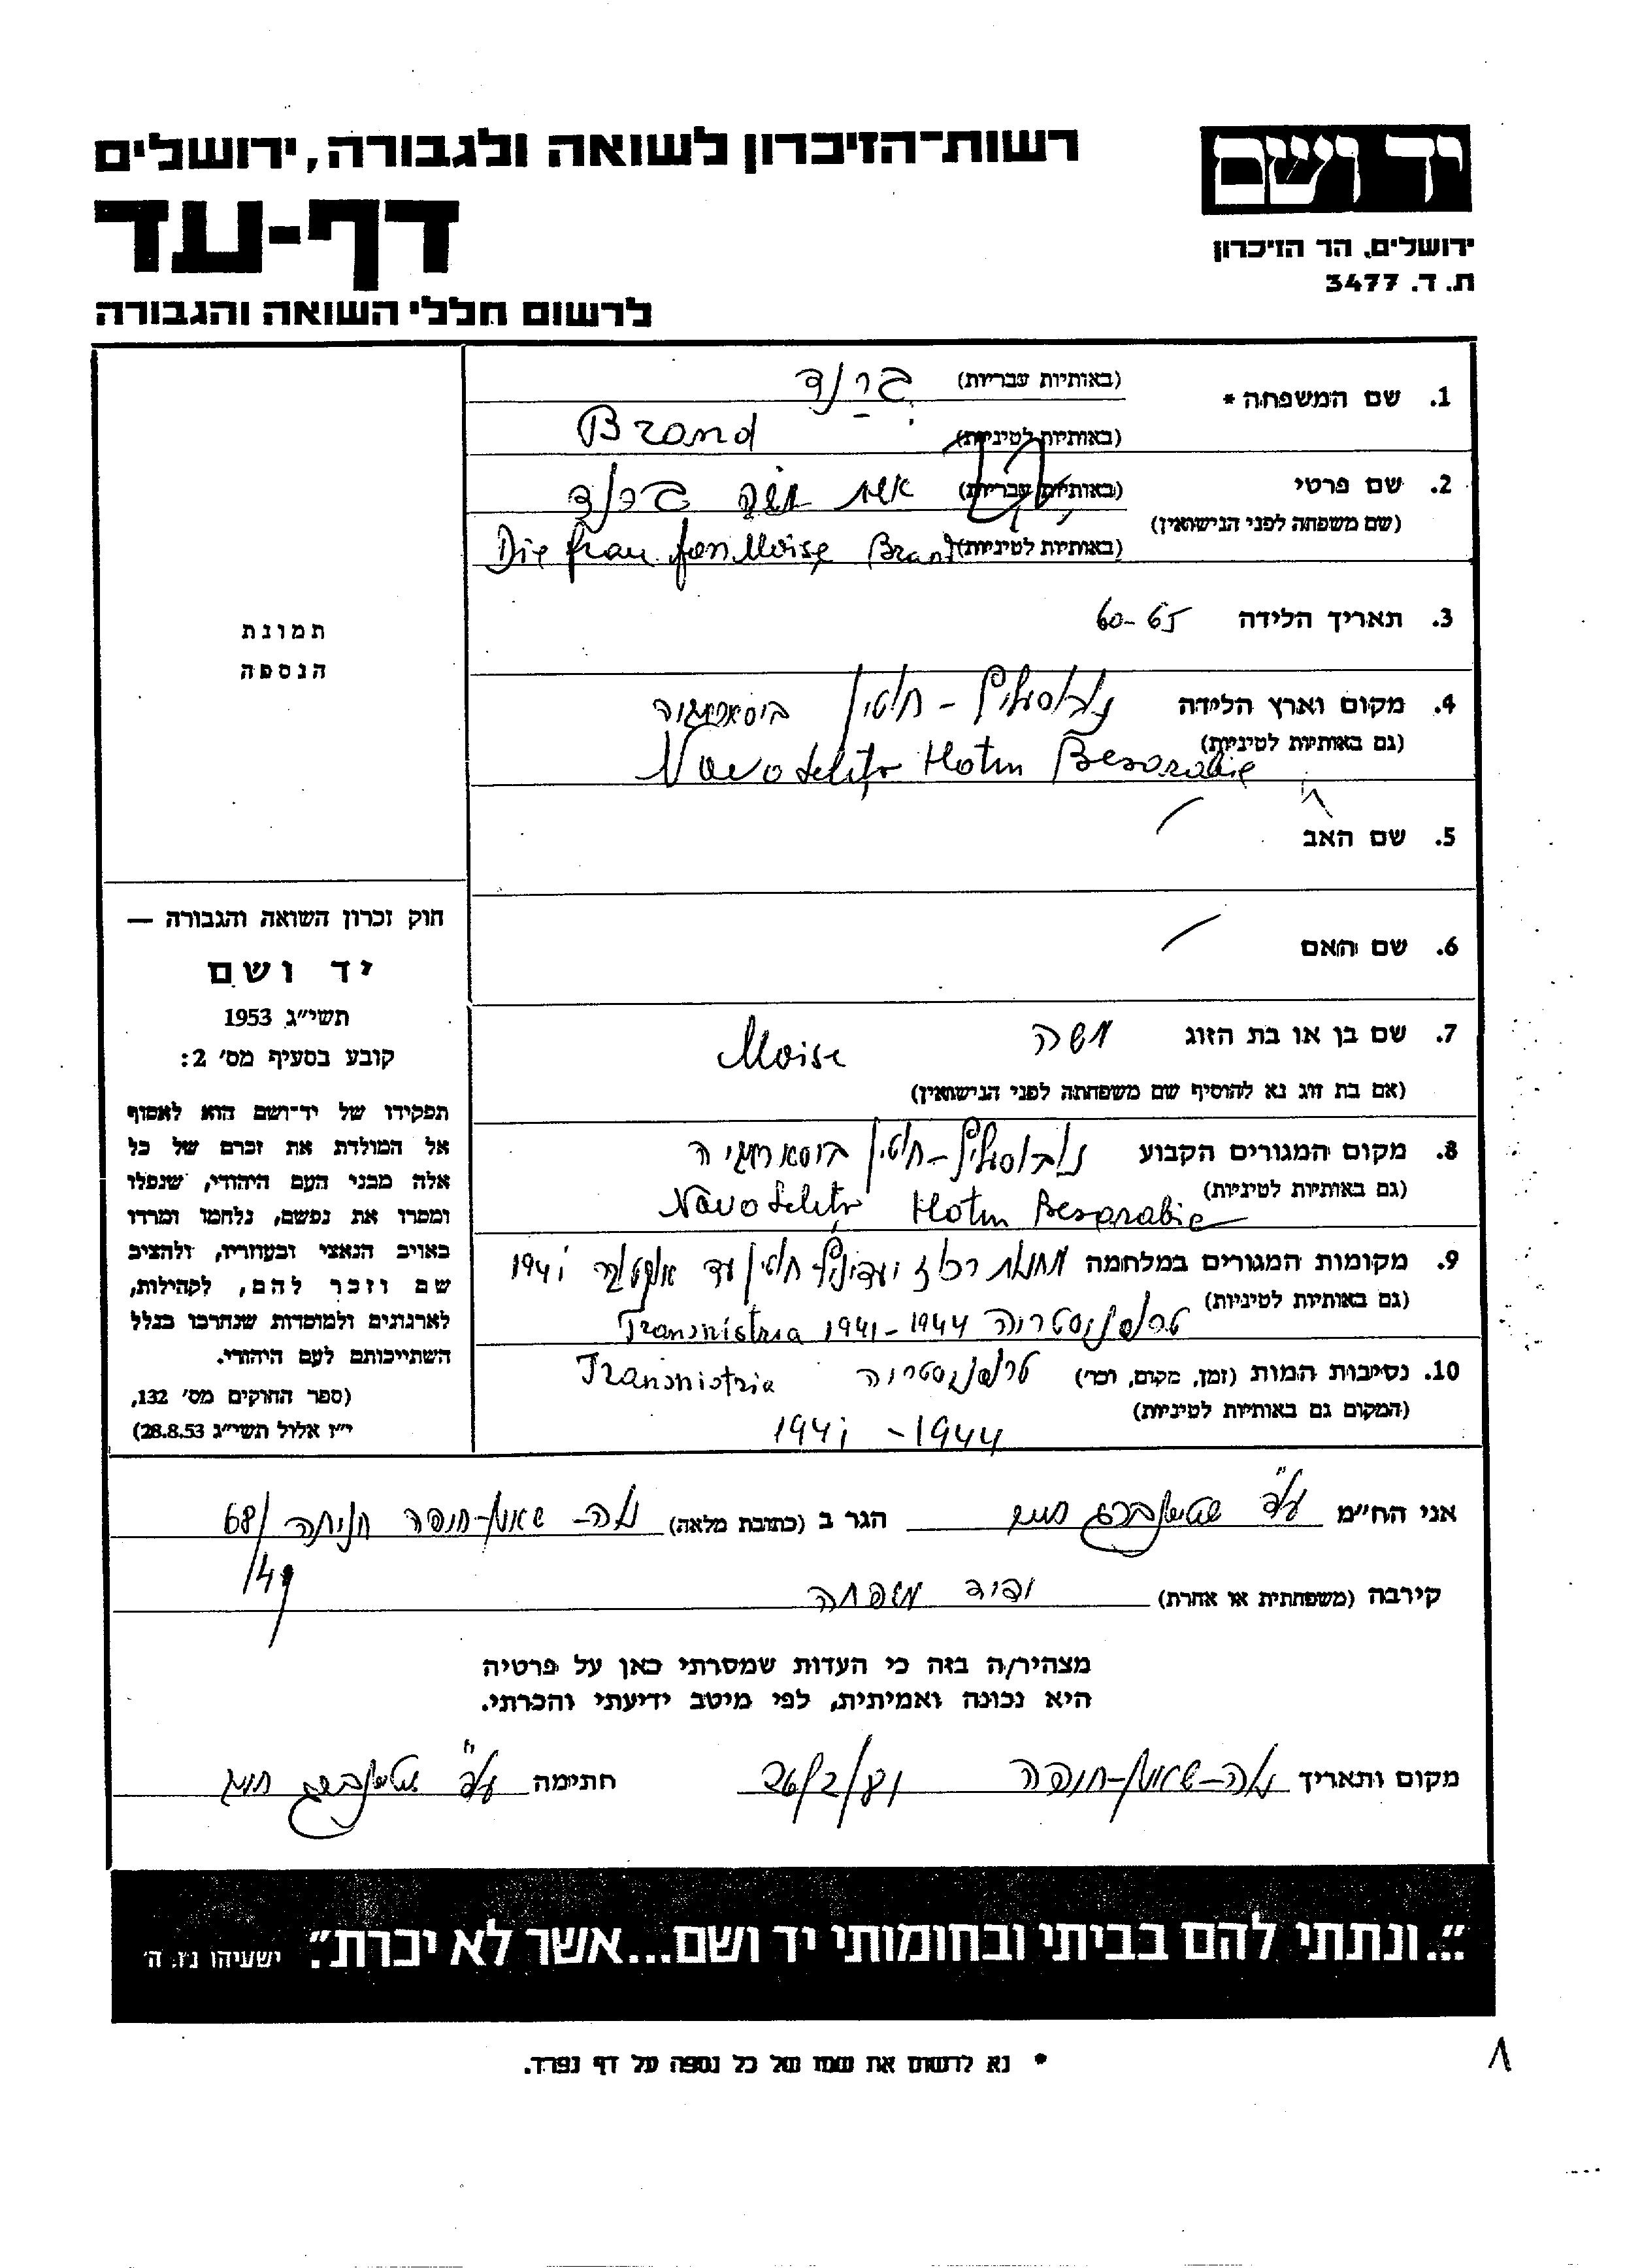 רשות־הזיכרון לשואה ולגבורה, ירושלים
דף-עד
לרשום חללי השואה והגבורה
יד ושם
ירושלים, הר הזיכרון
ת. ד. 3477
1. שם המשפחה * (באותיות עבריות) ברנד
(באותיות לטיניות) Brand
2. שם פרטי (באותיות עבריות) אשת משה ברנד
(שם משפחה לפני הנישואין)
(באותיות לטיניות) Die frau fon Moise Brand
3. תאריך הלידה 60-65
4. מקום וארץ הלידה נובוסליץ - חוטין
(גם באותיות לטיניות) Novoselitz Hotin Besarabie
5. שם האב /
6. שם האם /
7. שם בן או בת הזוג משה Moise
(אם בת זוג נא להוסיף שם משפחתה לפני הנישואין)
8. מקום המגורים הקבוע נובוסליץ-חוטין
(גם באותיות לטיניות) Novoselitz Hotin Besarabie
9. מקומות המגורים במלחמה מחנות ריכוז חוטין עד אוקטובר 1941
(גם באותיות לטיניות) טרנסניסטריה Transnistria 1941-1944
10. נסיבות המות (זמן, מקום, וכו') טרנסניסטריה Transnistria
(המקום גם באותיות לטיניות) 1941 - 1944
תמונת
הנספה
חוק זכרון השואה והגבורה —
יד ושם
תשי״ג 1953
קובע בסעיף מס' 2:
תפקידו של יד־ושם הוא לאסוף
אל המולדת את זכרם של כל
אלה מבני העם היהודי, שנפלו
ומסרו את נפשם, נלחמו ומרדו
באויב הנאצי ובעוזריו, ולהציב
שם וזכר להם, לקהילות,
לארגונים ולמוסדות שנחרבו בגלל
השתייכותם לעם היהודי.
(ספר החוקים מס' 132,
י״ז אלול תשי״ג 28.8.53)
אני הח״מ שטיינברג הגר ב (כתובת מלאה) נוה-שאנן-חיפה חניתה 68/
/49
קירבה (משפחתית או אחרת) משפחה
מצהיר/ה בזה כי העדות שמסרתי כאן על פרטיה
היא נכונה ואמיתית, לפי מיטב ידיעתי והכרתי.
מקום ותאריך נוה-שאנן-חיפה 26/2/81 חתימה שטיינברג
״...ונתתי להם בביתי ובחומותי יד ושם...אשר לא יכרת״. ישעיהו נו, ה'
* נא לרשום את שמו של כל נספה על דף נפרד.